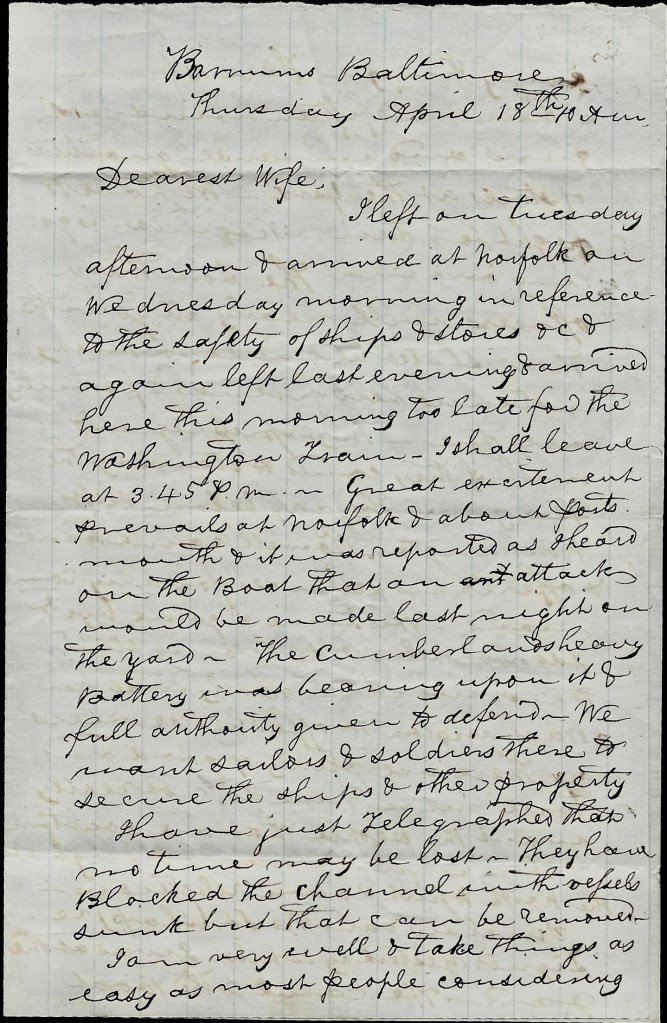 Barnums Baltimore
Thursday April 18th 10 Am.
Dearest Wife,
I left on Tuesday
afternoon & arrived at Norfolk on
Wednesday morning in reference
to the safety of ships & stores &c &
again left last evening & arrived
here this morning too late for the
Washington Train – I shall leave
at 3.45 P.m. – Great excitement
prevails at Norfolk & about Ports-
mouth & it was reported as I heard
on the Boat that an attack
would be made last night on
the yard – The Cumberlands heavy
Battery was bearing upon it &
full authority given to defend – We
want sailors & soldiers there to
secure the ships & other property
I have just Telegraphed that
no time may be lost – They have
Blocked the channel with vessels
sunk but that can be removed –
I am very well & take things as
easy as most people considering